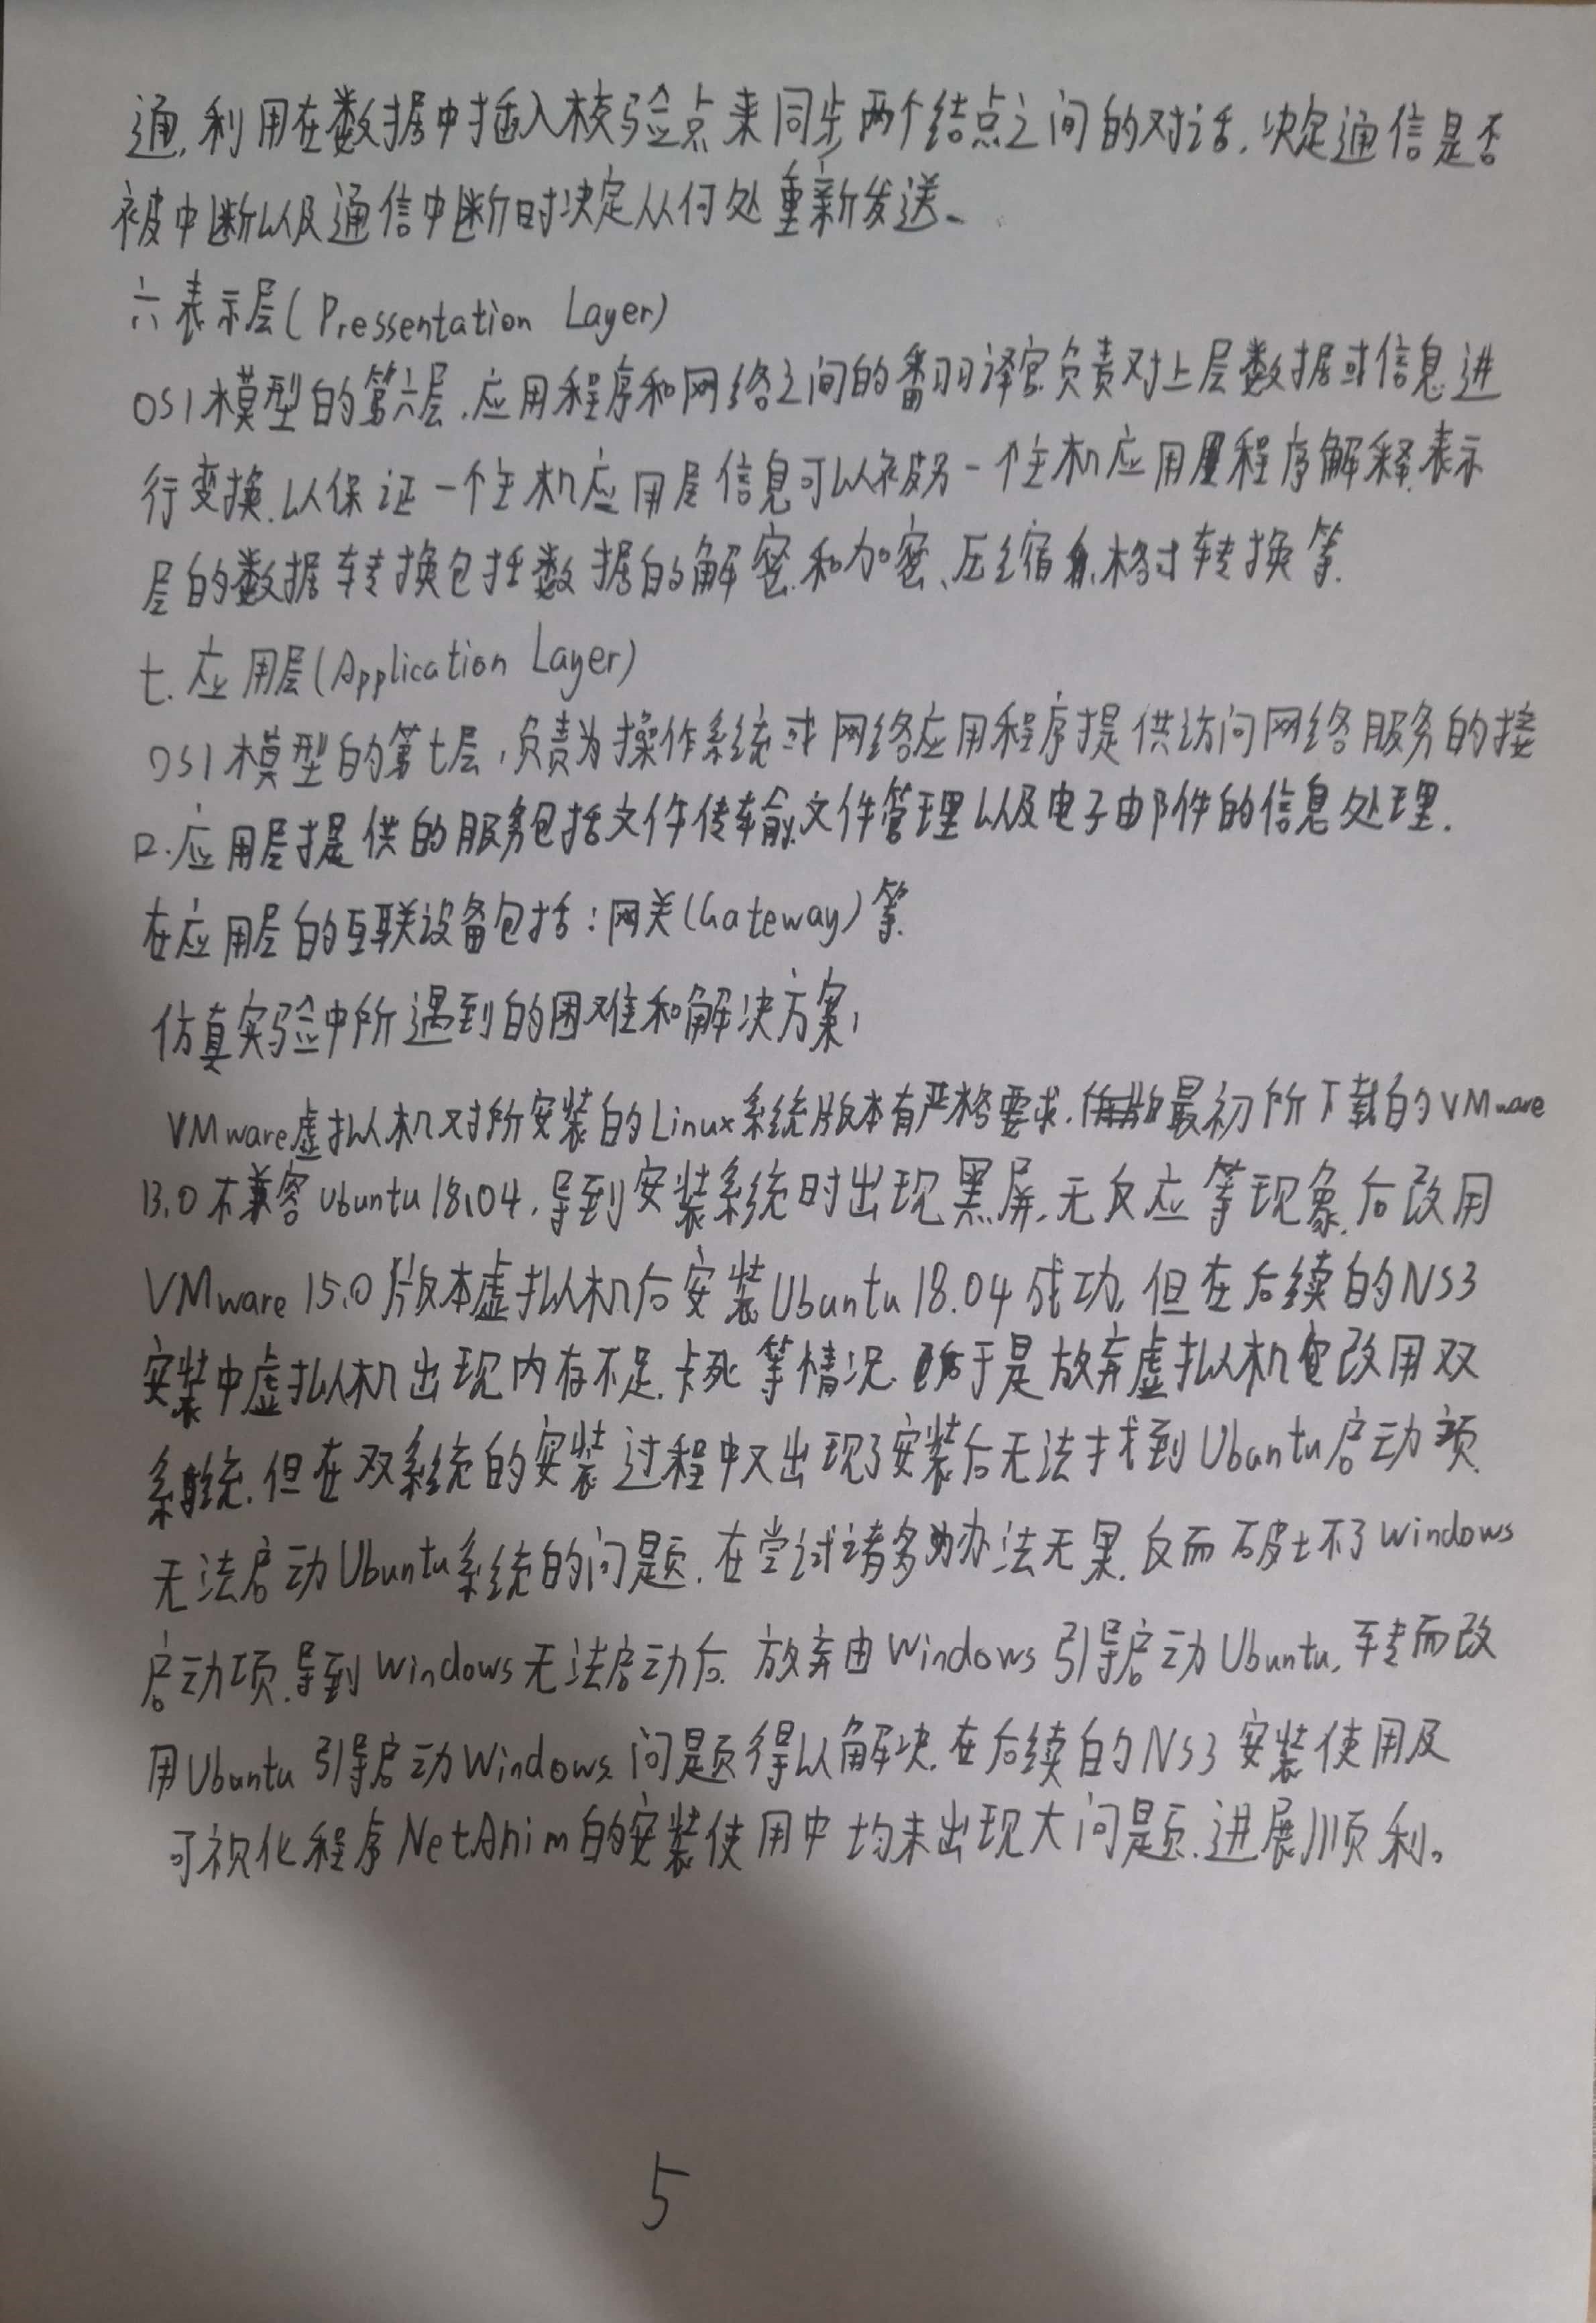 通,利用在数据中插入校验点来同步两个结点之间的对话,决定通信是否
被中断以及通信中断时决定从何处重新发送、
六表示层(Pressentation Layer)
OSI模型的第六层.应用程序和网络之间的翻译官负责对上层数据或信息进
行变换.以保证一个主机应用层信息可以被另一个主机应用程序解释.表示
层的数据转换包括数据的解密.和加密、压缩和格式转换等.
七.应用层(Application Layer)
OSI模型的第七层,负责为操作系统或网络应用程序提供访问网络服务的接
口.应用层提供的服务包括文件传输.文件管理以及电子邮件的信息处理.
在应用层的互联设备包括:网关(Gateway)等.
仿真实验中所遇到的困难和解决方案:
VMware虚拟机对所安装的Linux系统版本有严格要求.最初所下载的VMware
13.0不兼容Ubuntu18.04,导到安装系统时出现黑屏.无反应等现象.后改用
VMware 15.0版本虚拟机后安装Ubuntu18.04成功,但在后续的NS3
安装中虚拟机出现内存不足.卡死等情况.于是放弃虚拟机改用双
系统.但在双系统的安装过程中又出现了安装后无法找到Ubuntu启动项.
无法启动Ubuntu系统的问题.在尝试诸多办法无果.反而破坏了windows
启动项.导到windows无法启动后.放弃由windows引导启动Ubuntu,转而改
用Ubuntu引导启动Windows.问题得以解决.在后续的NS3安装使用及
可视化程序NetAnim的安装使用中均未出现大问题.进展顺利。
5